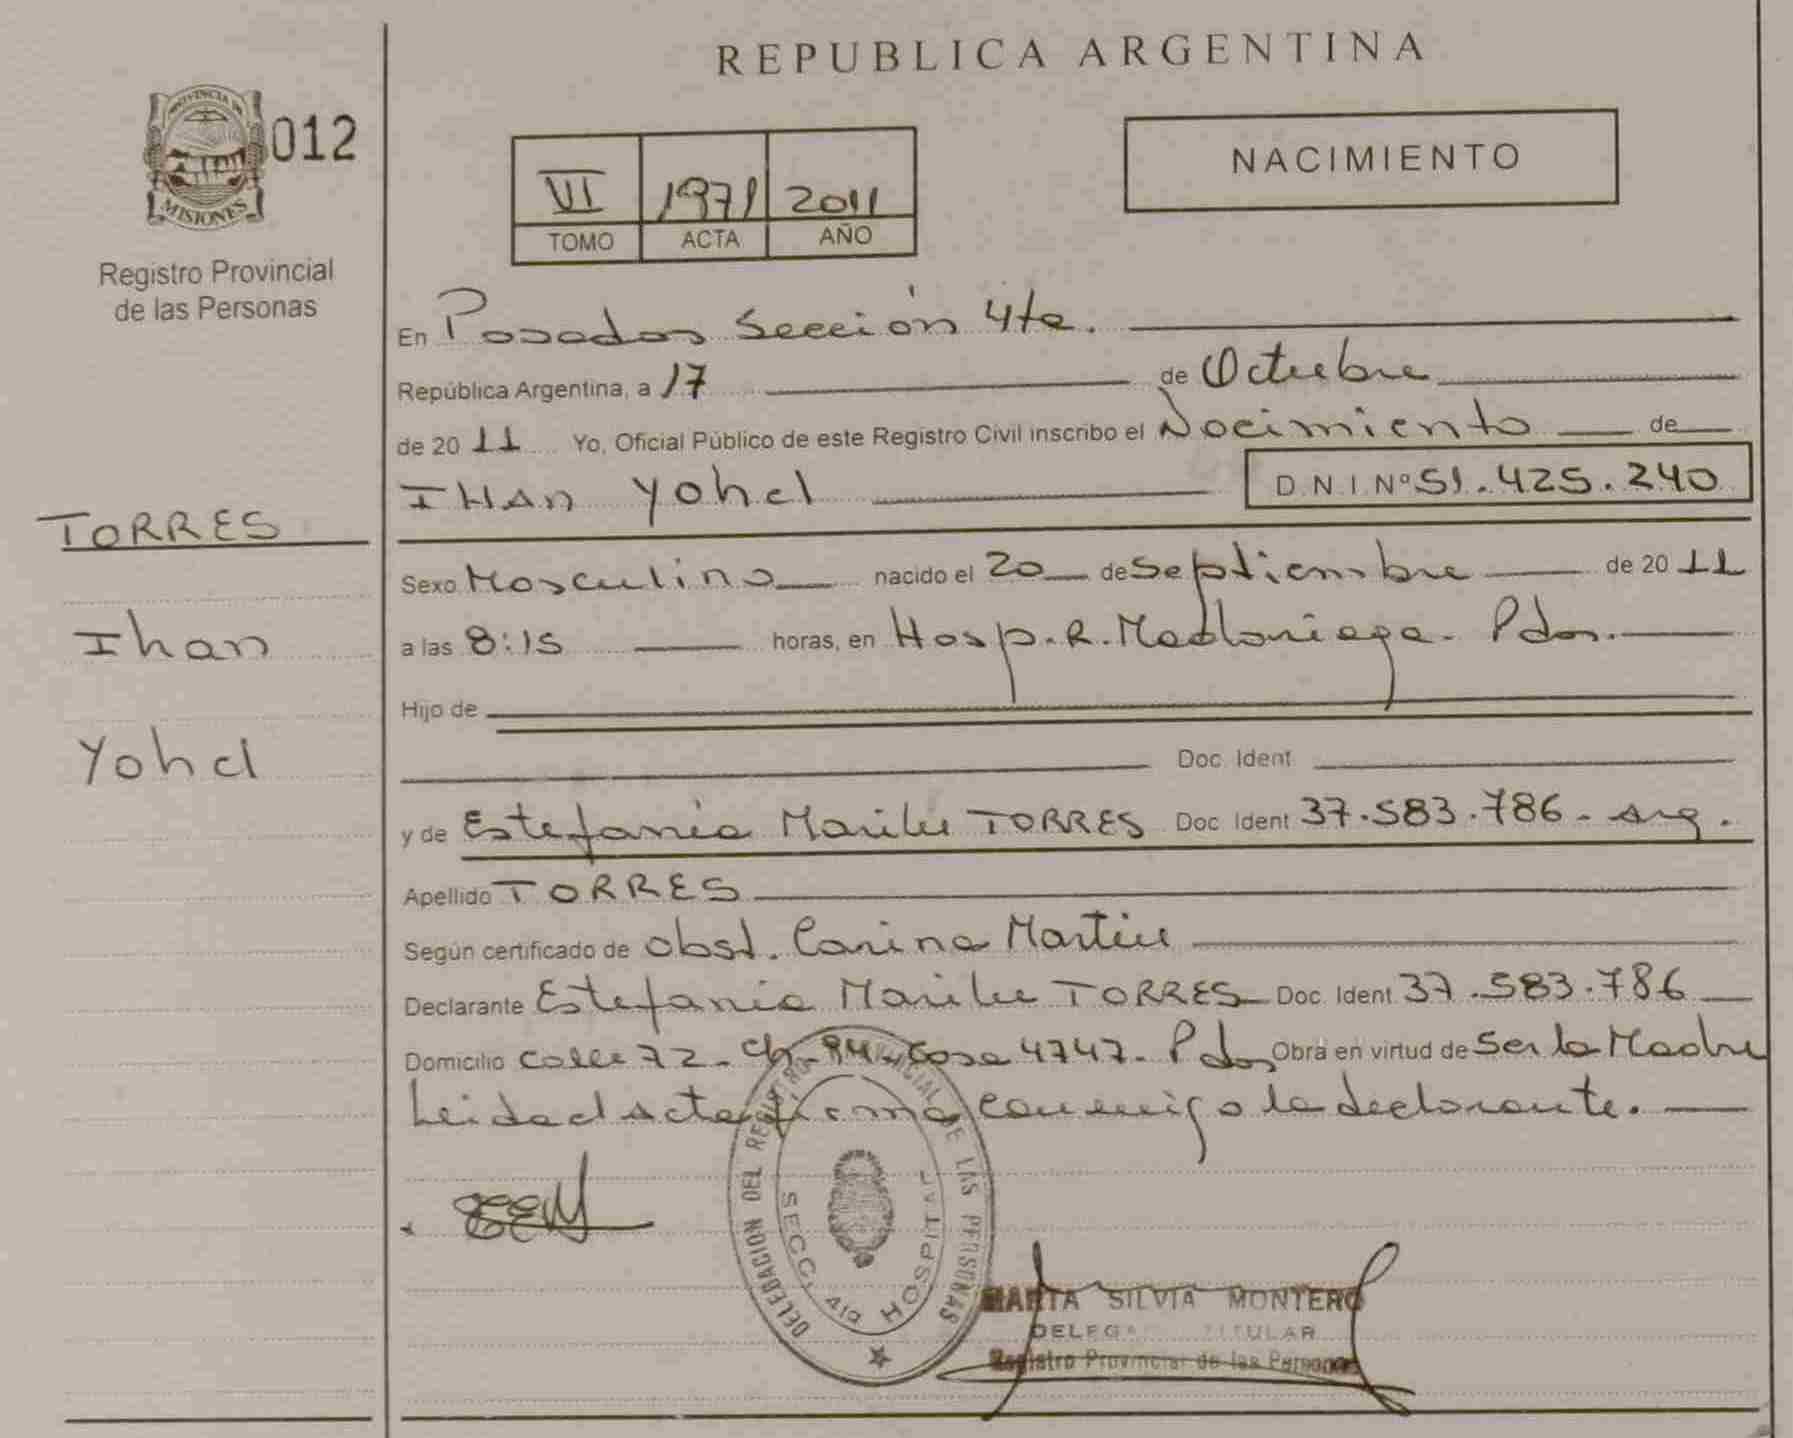 REPUBLICA ARGENTINA
PROVINCIA DE
MISIONES
012
Registro Provincial
de las Personas
VI 1971 2011
TOMO ACTA AÑO
NACIMIENTO
En Posadas Sección 4ta.
República Argentina, a 17 de Octubre
de 20 11 Yo, Oficial Público de este Registro Civil inscribo el Nacimiento de
IHAN Yohel D.N.I. Nº 51.425.240
TORRES
Ihan
Yohel
Sexo Masculino nacido el 20 de Septiembre de 20 11
a las 8:15 horas, en Hosp. R. Madariaga. Pdas.
Hijo de
Doc. Ident
y de Estefania Marilu TORRES Doc Ident 37.583.786 - Arg.
Apellido TORRES
Según certificado de obst. Carina
Declarante Estefania Marilu TORRES Doc. Ident 37.583.786
Domicilio Calle 72 - Ch. 94 - Casa 4747 - Pdas Obra en virtud de Ser la Madre
Leida el Acta firma conmigo la declarante.
DELEGACION DEL REGISTRO PROVINCIAL DE LAS PERSONAS
SECC. 4ta HOSPITAL
MARTA SILVIA MONTERO
TITULAR
Registro Provincial de las Personas